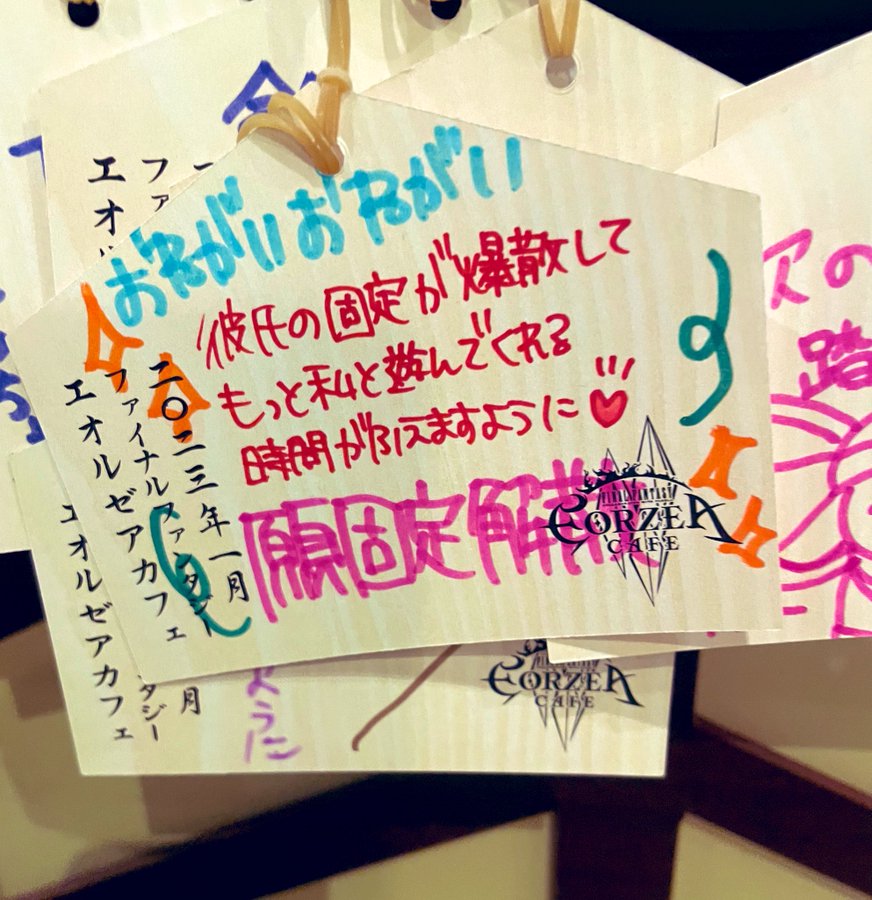 おねがいおねがい
彼氏の固定が爆散して
もっと私と遊んでくれる
時間がふえますように
願固定解散
二〇二三年一月
ファイナルファンタジー
エオルゼアカフェ
FINAL FANTASY
EORZEA
CAFE
ファ
エオル
月
タジー
エオルゼアカフェ
ように
EORZEA
CAFE
アの
踏